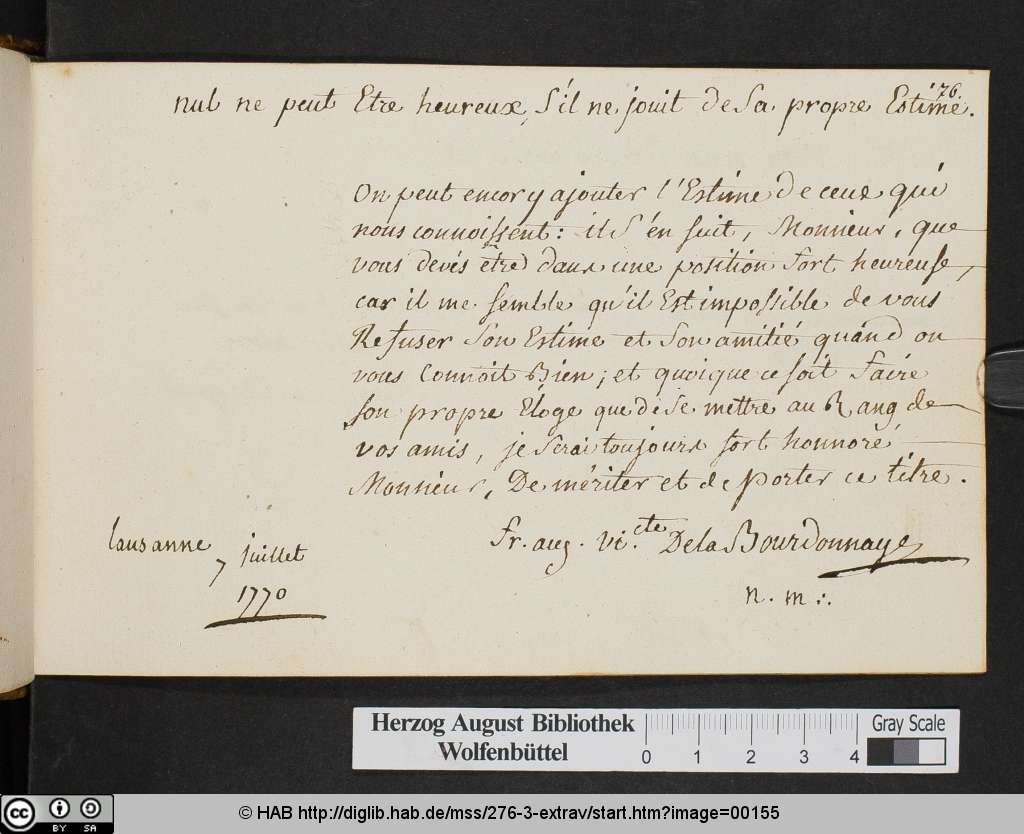 76.
nul ne peut Etre heureux, s'il ne jouit de sa propre Estime.
On peut encor y ajouter l'Estime de ceux qui
nous connoissent: il s'én suit, Monsieur, que
vous devés être dans une position fort heureuse,
car il me semble qu'il Est impossible de vous
Refuser son Estime et son amitié quánd on
vous Connoit Bien; et quoique ce soit faire
son propre Éloge que de se mettre au Rang de
vos amis, je serai toujours fort honnoré
Monsieur, De mériter et de porter ce titre.
fr. aug. vi.cte De la Bourdonnaye
n. m ∴
lausanne
7 juillet
1770
Herzog August Bibliothek
Wolfenbüttel
0 1 2 3 4
Gray Scale
cc BY SA
© HAB http://diglib.hab.de/mss/276-3-extrav/start.htm?image=00155